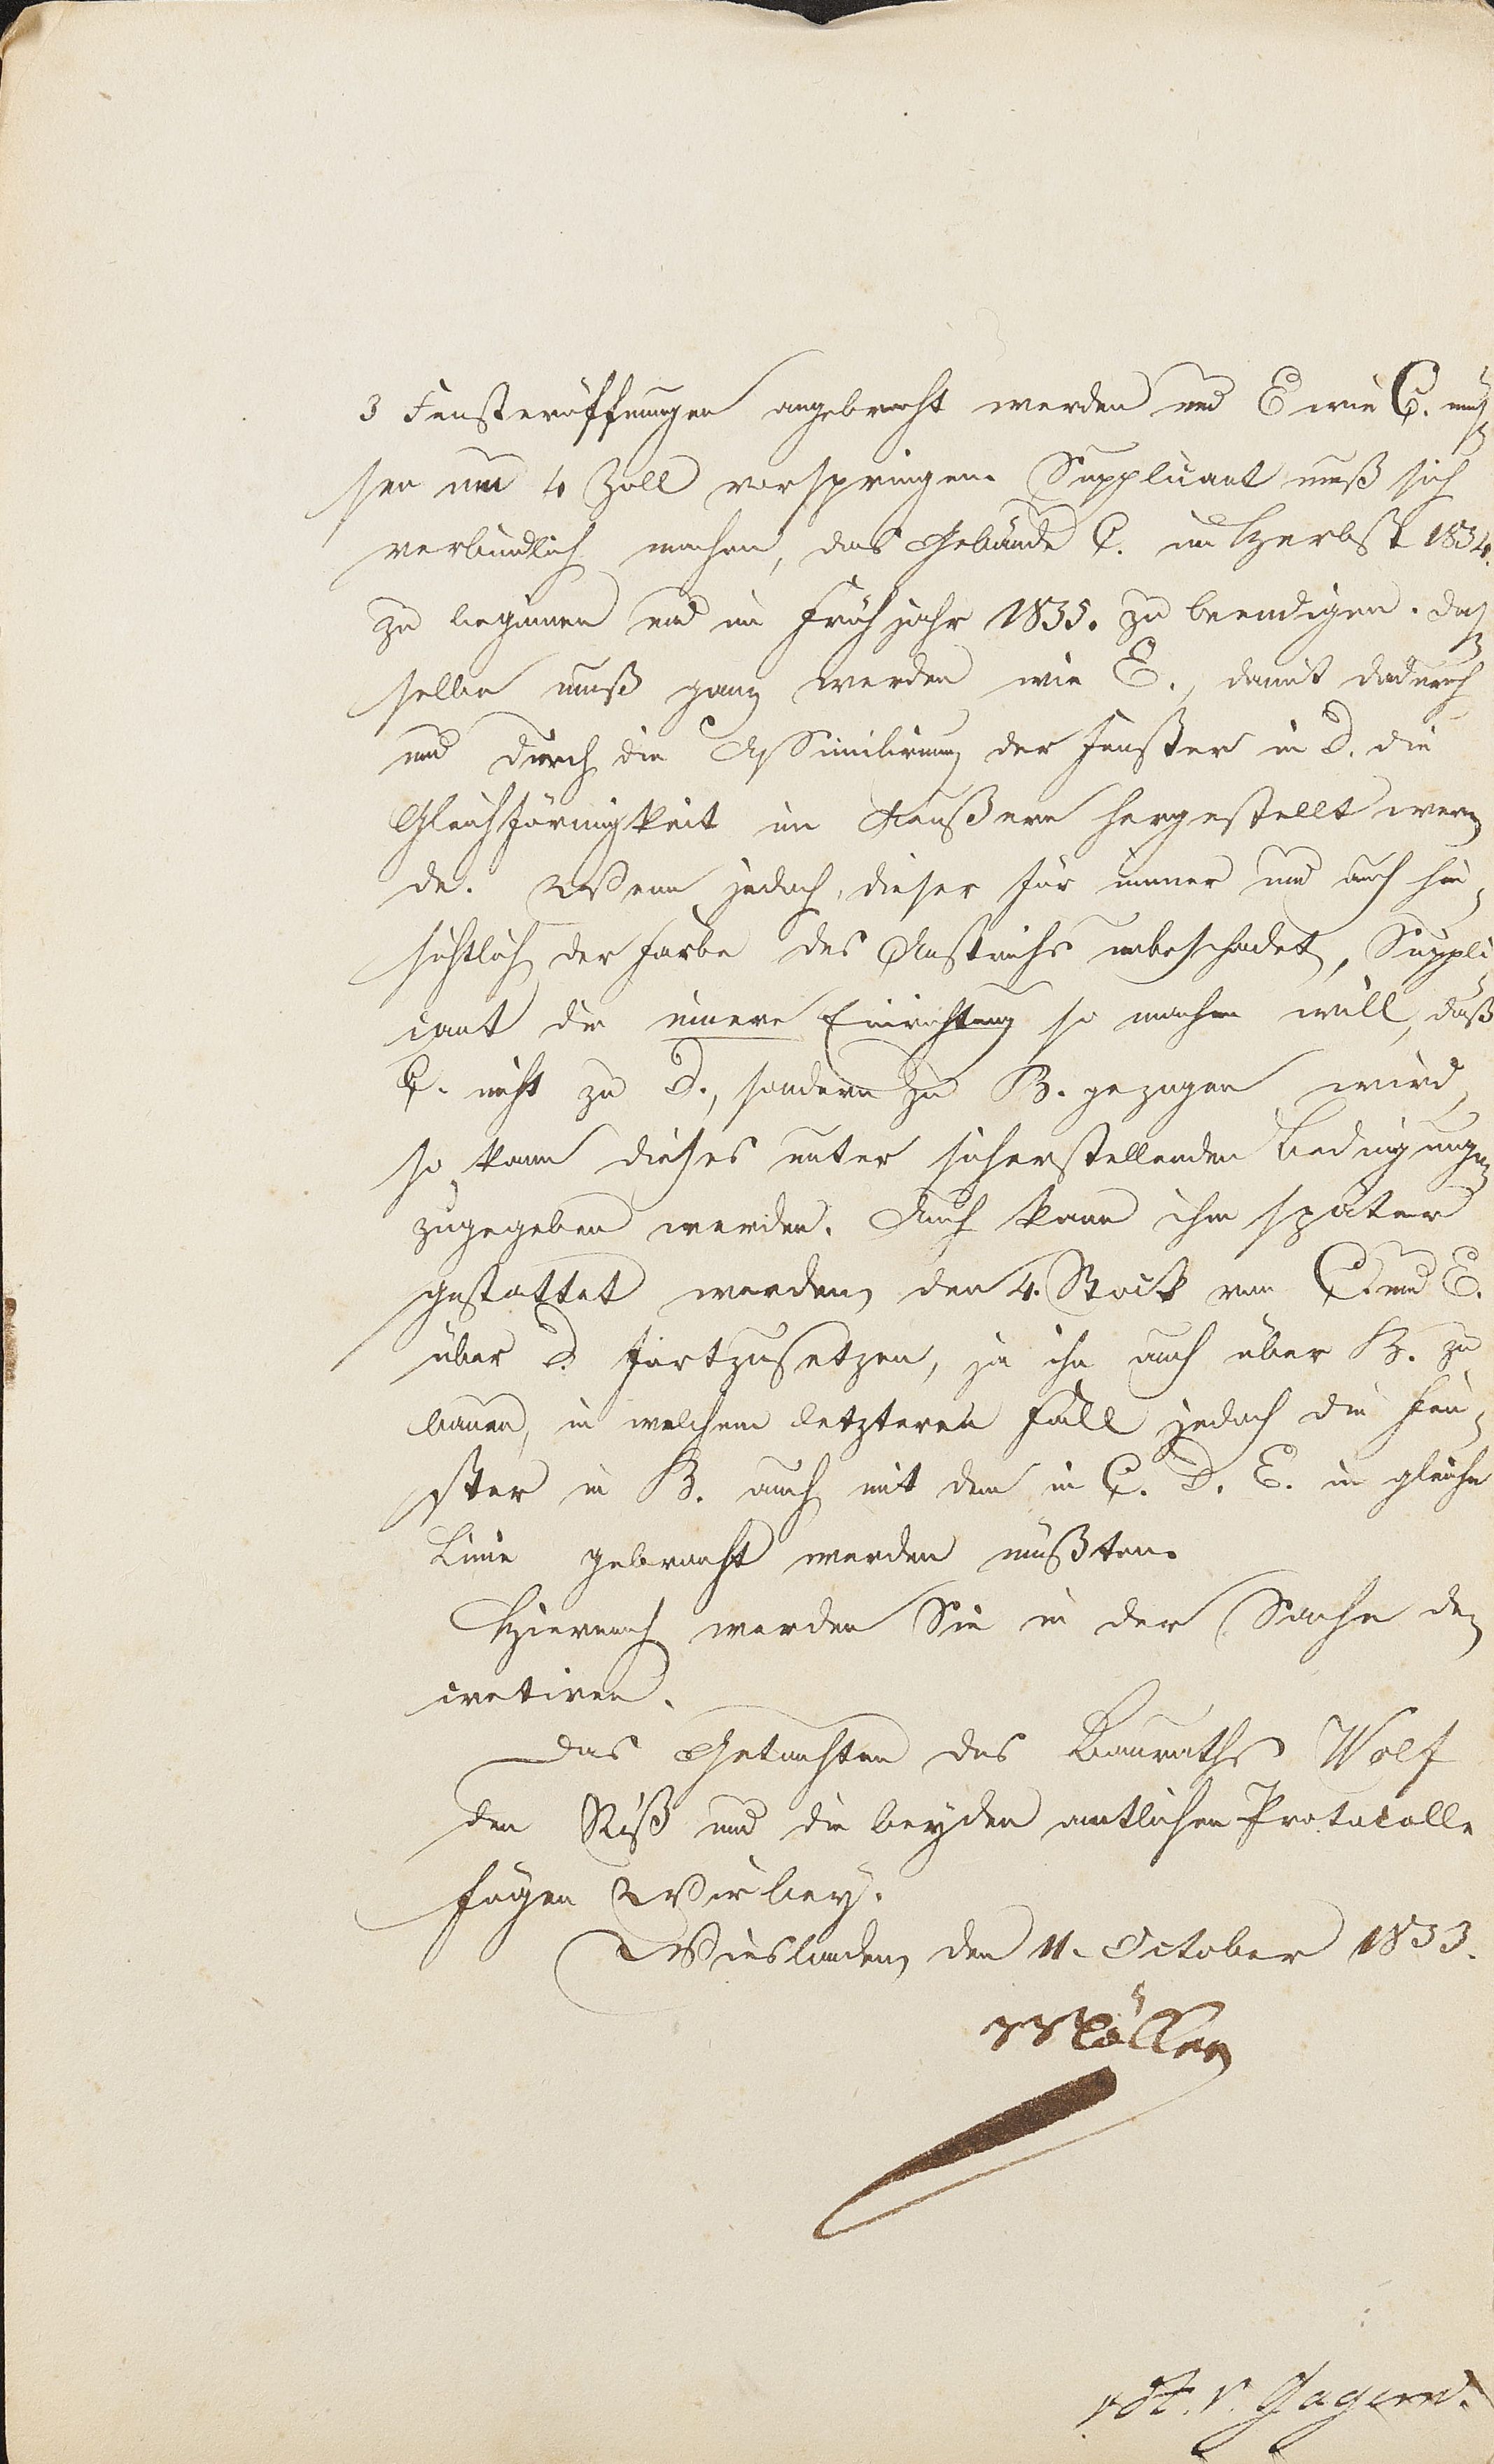 3 Fensteröffnungen angebracht werden und E wie C. müs-
sen um 4 Zoll vorspringen. Supplicant muß sich
verbindlich machen, das Gebäude C. im Herbst 1834.
zu beginnen und im Frühjahr 1835. zu beendigen. Das-
selbe muß ganz werden wie E., damit dadurch
und durch die Assimilirung der Fenster in D. die
Gleichförmigkeit im Aeußern hergestellt wer-
de. Wenn jedoch, dieser für immer und auch hin-
sichtlich der Farbe des Anstrichs unbeschadet, Suppli-
cant die innere Einrichtung so machen will, daß
C. nicht zu D., sondern zu B. gezogen wird,
so kann dieses unter sicherstellenden Bedingungen
zugegeben werden. Auch kann ihm später
gestattet werden, den 4. Stock von C. und E.
über D. fortzusetzen, ja ihn auch über B. zu
bauen, in welchem letzteren Fall jedoch die Fen-
ster in B. auch mit den in C. D. E. in gleiche
Linie gebracht werden müßten.
Hiernach werden Sie in der Sache de-
cretiren.
Das Gutachten des Bauraths Wolf
den Riß und die beyden amtlichen Protocolle
fügen Wir bey.
Wiesbaden, den 11. October 1833.
Möller
vdt. v. Gagern.